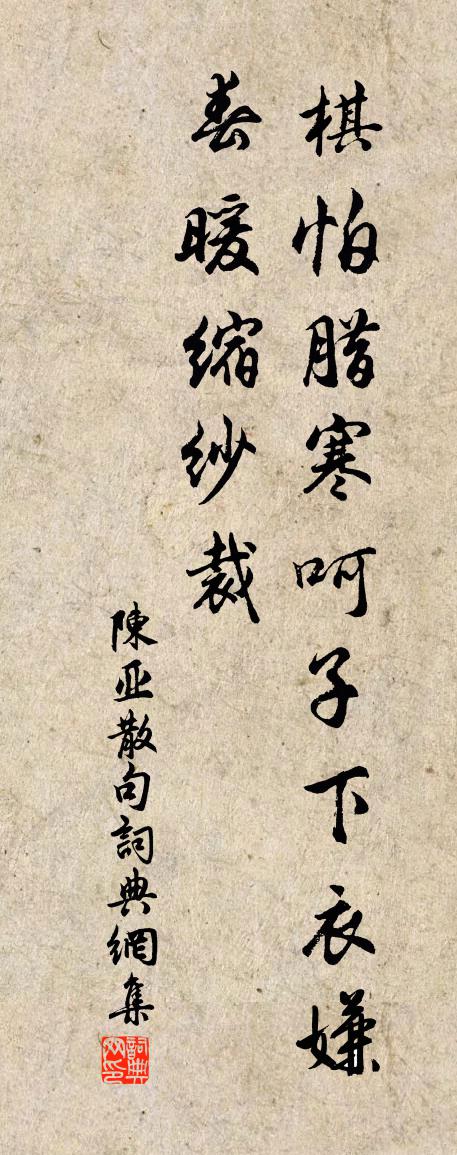 棋怕腊寒呵子下衣嫌
春暖缩纱裁
陳亚散句詞典網集
詞典网印